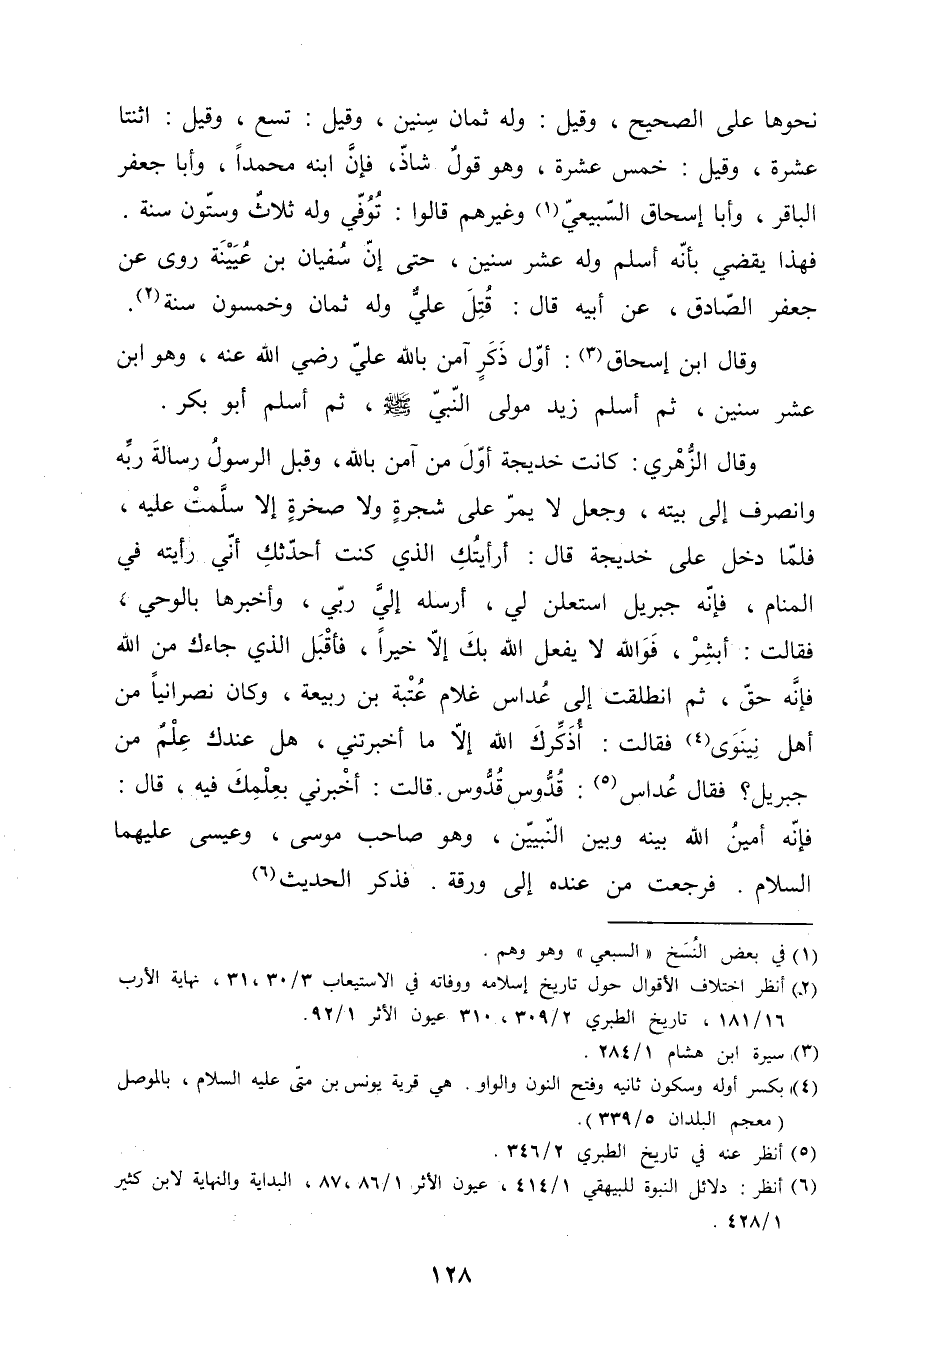 نحوها على الصحيح ، وقيل : وله ثمان سِنين ، وقيل : تسع ، وقيل : اثنتا
عشرة ، وقيل : خمس عشرة ، وهو قولٌ شاذّ، فإنَّ ابنه محمداً ، وأبا جعفر
الباقر ، وأبا إسحاق السّبيعيّ(١) وغيرهم قالوا : تُوُفّي وله ثلاثٌ وستّون سنة .
فهذا يقضي بأنّه أسلم وله عشر سنين ، حتى إنّ سُفيان بن عُيَيْنَة روى عن
جعفر الصّادق ، عن أبيه قال : قُتِلَ عليٌّ وله ثمان وخمسون سنة(٢).
وقال ابن إسحاق(٣) : أوّل ذَكَرٍ آمن بالله عليّ رضي الله عنه ، وهو ابن
عشر سنين ، ثم أسلم زيد مولى النّبيّ ﷺ ، ثم أسلم أبو بكر .
وقال الزُّهْري : كانت خديجة أوّلَ من آمن بالله، وقبل الرسولُ رسالةَ ربِّه
وانصرف إلى بيته ، وجعل لا يمرّ على شجرةٍ ولا صخرةٍ إلا سلَّمتْ عليه ،
فلمّا دخل على خديجة قال : أرأيتُكِ الذي كنت أحدّثكِ أنّي رأيته في
المنام ، فإنّه جبريل استعلن لي ، أرسله إليَّ ربّي ، وأخبرها بالوحي ،
فقالت : أبشِرْ ، فَوَالله لا يفعل الله بكَ إلاّ خيراً ، فأقْبَل الذي جاءك من الله
فإنَّه حقّ ، ثم انطلقت إلى عُداس غلام عُتْبة بن ربيعة ، وكان نصرانياً من
أهل نِينَوَى(٤) فقالت : أُذَكِّركَ الله إلاّ ما أخبرتني ، هل عندك عِلْمٌ من
جبريل؟ فقال عُداس(٥) : قُدُّوس قُدُّوس. قالت : أخْبرني بعِلْمِكَ فيه ، قال :
فإنّه أمينُ الله بينه وبين النّبيّين ، وهو صاحب موسى ، وعيسى عليهما
السلام . فرجعت من عنده إلى ورقة . فذكر الحديث(٦)
(١) في بعض النُسَخ « السبعي » وهو وهم .
(٢) أنظر اختلاف الأقوال حول تاريخ إسلامه ووفاته في الاستيعاب ٣٠/٣ ،٣١ ، نهاية الأرب
١٨١/١٦ ، تاريخ الطبري ٣٠٩/٢ ، ٣١٠ عيون الأثر ٩٢/١.
(٣) سيرة ابن هشام ٢٨٤/١ .
(٤) بكسر أوله وسكون ثانيه وفتح النون والواو . هي قرية يونس بن متّى عليه السلام ، بالموصل
( معجم البلدان ٣٣٩/٥ ).
(٥) أنظر عنه في تاريخ الطبري ٣٤٦/٢ .
(٦) أنظر : دلائل النبوة للبيهقي ٤١٤/١ ، عيون الأثر ٨٦/١ ،٨٧ ، البداية والنهاية لابن كثير
٤٢٨/١ .
١٢٨